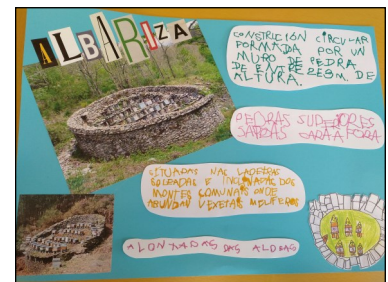 ALBARIZA
CONSTRICIÓN CIRCULAR
FORMADA POR UN
MURO DE PEDRA
DE ENTRE 2E3M. DE
ALTURA.
PEDRAS SUPERIORES
SAÍDAS CARA A FORA
SITUADAS NAS LADEIRAS
SOLEADAS E INCLINADAS DOS
MONTES COMUNAIS ONDE
ABUNDAN VEXETAIS MELÍFEROS
ALONXADAS DAS ALDEAS